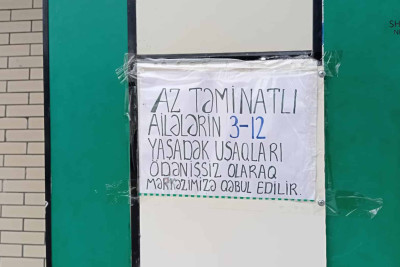 AZ TƏMİNATLI
AİLƏLƏRİN 3-12
YAŞADƏK UŞAQLARI
ÖDƏNİŞSİZ OLARAQ
MƏRKƏZİMİZƏ QƏBUL EDİLİR.
SH